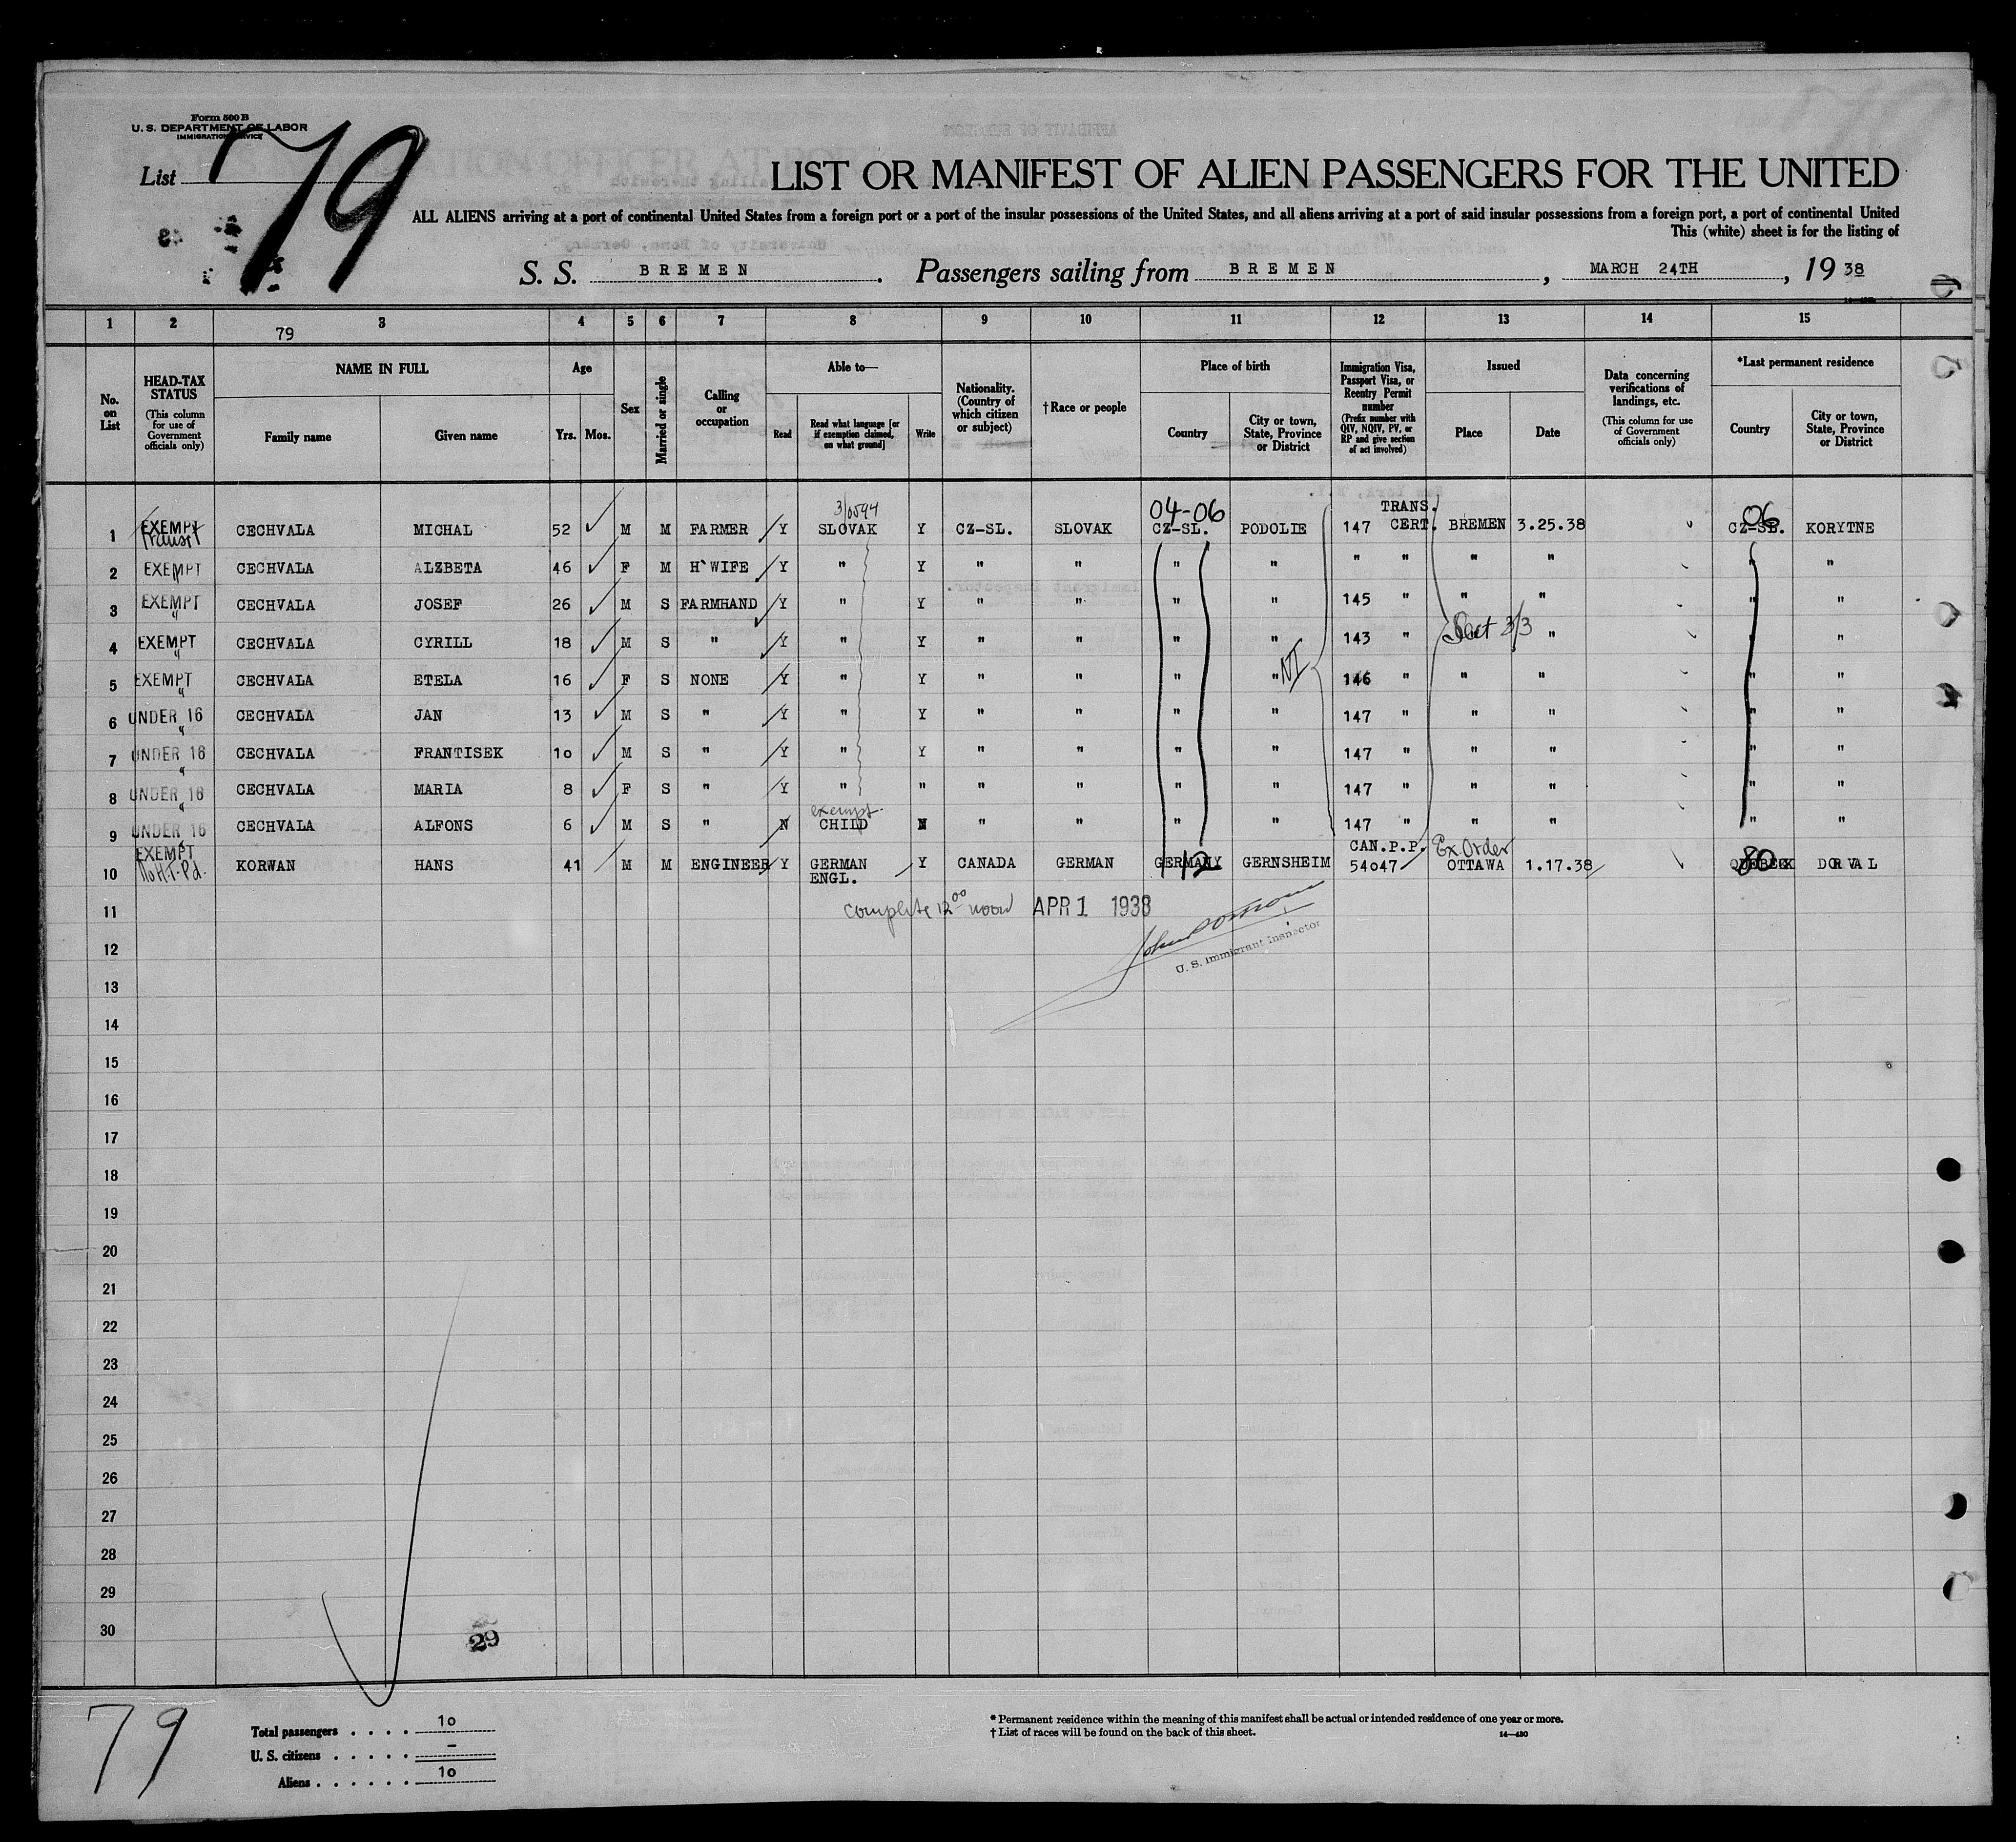 Form 500 B
U. S. DEPARTMENT OF LABOR
IMMIGRATION SERVICE
List 79
LIST OR MANIFEST OF ALIEN PASSENGERS FOR THE UNITED
ALL ALIENS arriving at a port of continental United States from a foreign port or a port of the insular possessions of the United States, and all aliens arriving at a port of said insular possessions from a foreign port, a port of continental United
This (white) sheet is for the listing of
S. S. BREMEN. Passengers sailing from BREMEN, MARCH 24TH, 19 38
1 2 3 4 5 6 7 8 9 10 11 12 13 14 15
79
No. on List
HEAD-TAX STATUS (This column for use of Government officials only)
NAME IN FULL
Family name Given name
Age
Yrs. Mos.
Sex
Married or single
Calling or occupation
Able to—
Read Read what language [or if exemption claimed, on what ground] Write
Nationality. (Country of which citizen or subject)
† Race or people
Place of birth
Country City or town, State, Province or District
Immigration Visa, Passport Visa, or Reentry Permit number (Prefix number with QIV, NQIV, PV, or RP and give section of act involved)
Issued
Place Date
Data concerning verifications of landings, etc. (This column for use of Government officials only)
*Last permanent residence
Country City or town, State, Province or District
04-06 TRANS. 06
1 EXEMPT Transit CECHVALA MICHAL 52 M M FARMER Y SLOVAK Y CZ-SL. SLOVAK CZ-SL. PODOLIE 147 CERT. BREMEN 3.25.38 CZ-SL. KORYTNE
2 EXEMPT " CECHVALA ALZBETA 46 F M H`WIFE Y " Y " " " " " " " " " "
3 EXEMPT " CECHVALA JOSEF 26 M S FARMHAND Y " Y " " " " 145 " " " " "
4 EXEMPT " CECHVALA CYRILL 18 M S " Y " Y " " " " 143 " Sect 3/3 " " "
5 EXEMPT " CECHVALA ETELA 16 F S NONE Y " Y " " " " NI 146 " " " " "
6 UNDER 16 " CECHVALA JAN 13 M S " Y " Y " " " " 147 " " " " "
7 UNDER 16 " CECHVALA FRANTISEK 10 M S " Y " Y " " " " 147 " " " " "
8 UNDER 16 " CECHVALA MARIA 8 F S " Y " " " " " " 147 " " " " "
9 UNDER 16 " CECHVALA ALFONS 6 M S " N exempt CHILD N " " " " 147 " " " " "
10 EXEMPT No H.T. Pd. KORWAN HANS 41 M M ENGINEER Y GERMAN ENGL. Y CANADA GERMAN GERMANY 12 GERNSHEIM CAN.P.P. 54047 Ex Order OTTAWA 1.17.38 80 DORVAL
11 complete 12 00 noon APR 1 1938
12
U. S. Immigrant Inspector
13
14
15
16
17
18
19
20
21
22
23
24
25
26
27
28
29
30
29
79
Total passengers . . . . 10
U. S. citizens . . . . . –
Aliens . . . . . . 10
* Permanent residence within the meaning of this manifest shall be actual or intended residence of one year or more.
† List of races will be found on the back of this sheet.
14—430